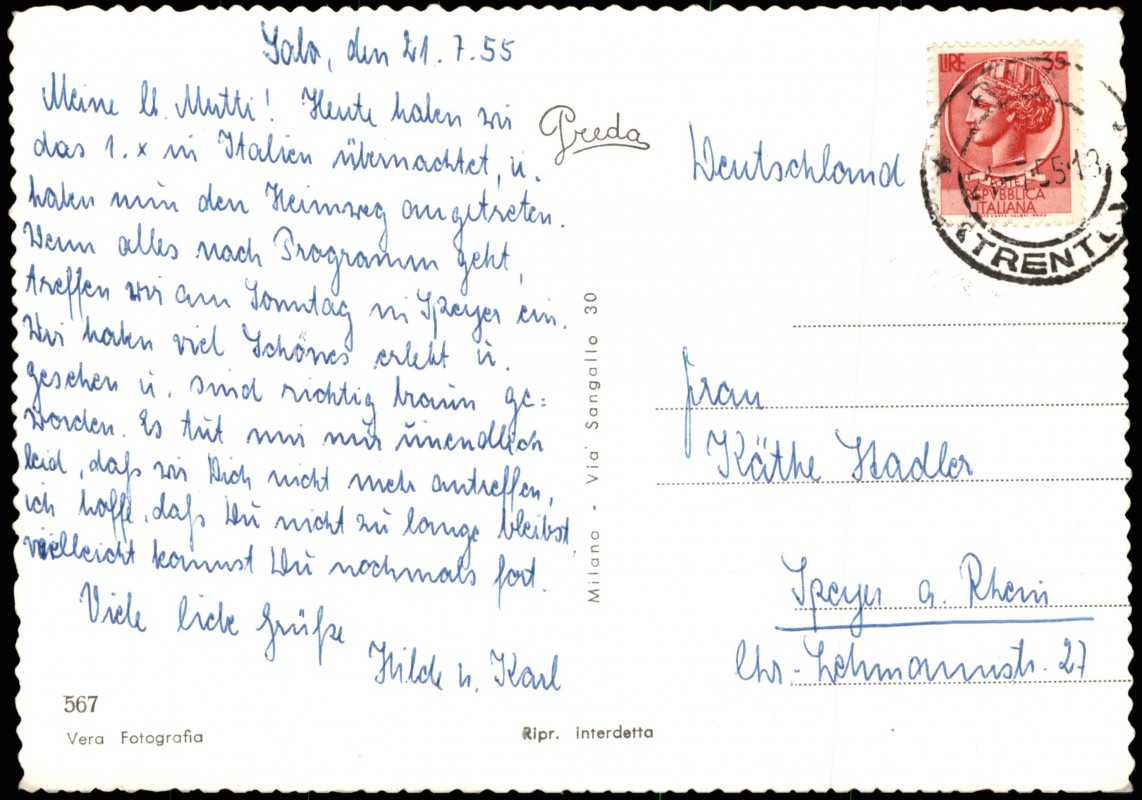 Salo, den 21.7.55
Meine lb. Mutti! Heute haben wir
das 1. x in Italien übernachtet, u.
haben nun den Heimweg angetreten.
Wenn alles nach Programm geht,
treffen wir am Sonntag in Speyer ein.
Wir haben viel Schönes erlebt u.
gesehen u. sind richtig braun ge=
worden. Es tut mir nur unendlich
leid, daß wir Dich nicht mehr antreffen,
ich hoffe, daß Du nicht zu lange bleibst,
vielleicht kommst Du nochmals fort.
Viele liebe Grüße
Hilde u. Karl
567
Vera Fotografia
Preda
Milano - Via Sangallo 30
Ripr. interdetta
Deutschland
LIRE 35
REPVBBLICA
ITALIANA
TRENTO
Frau
Käthe Stadler
Speyer a. Rhein
Chr.-Lehmannstr. 27